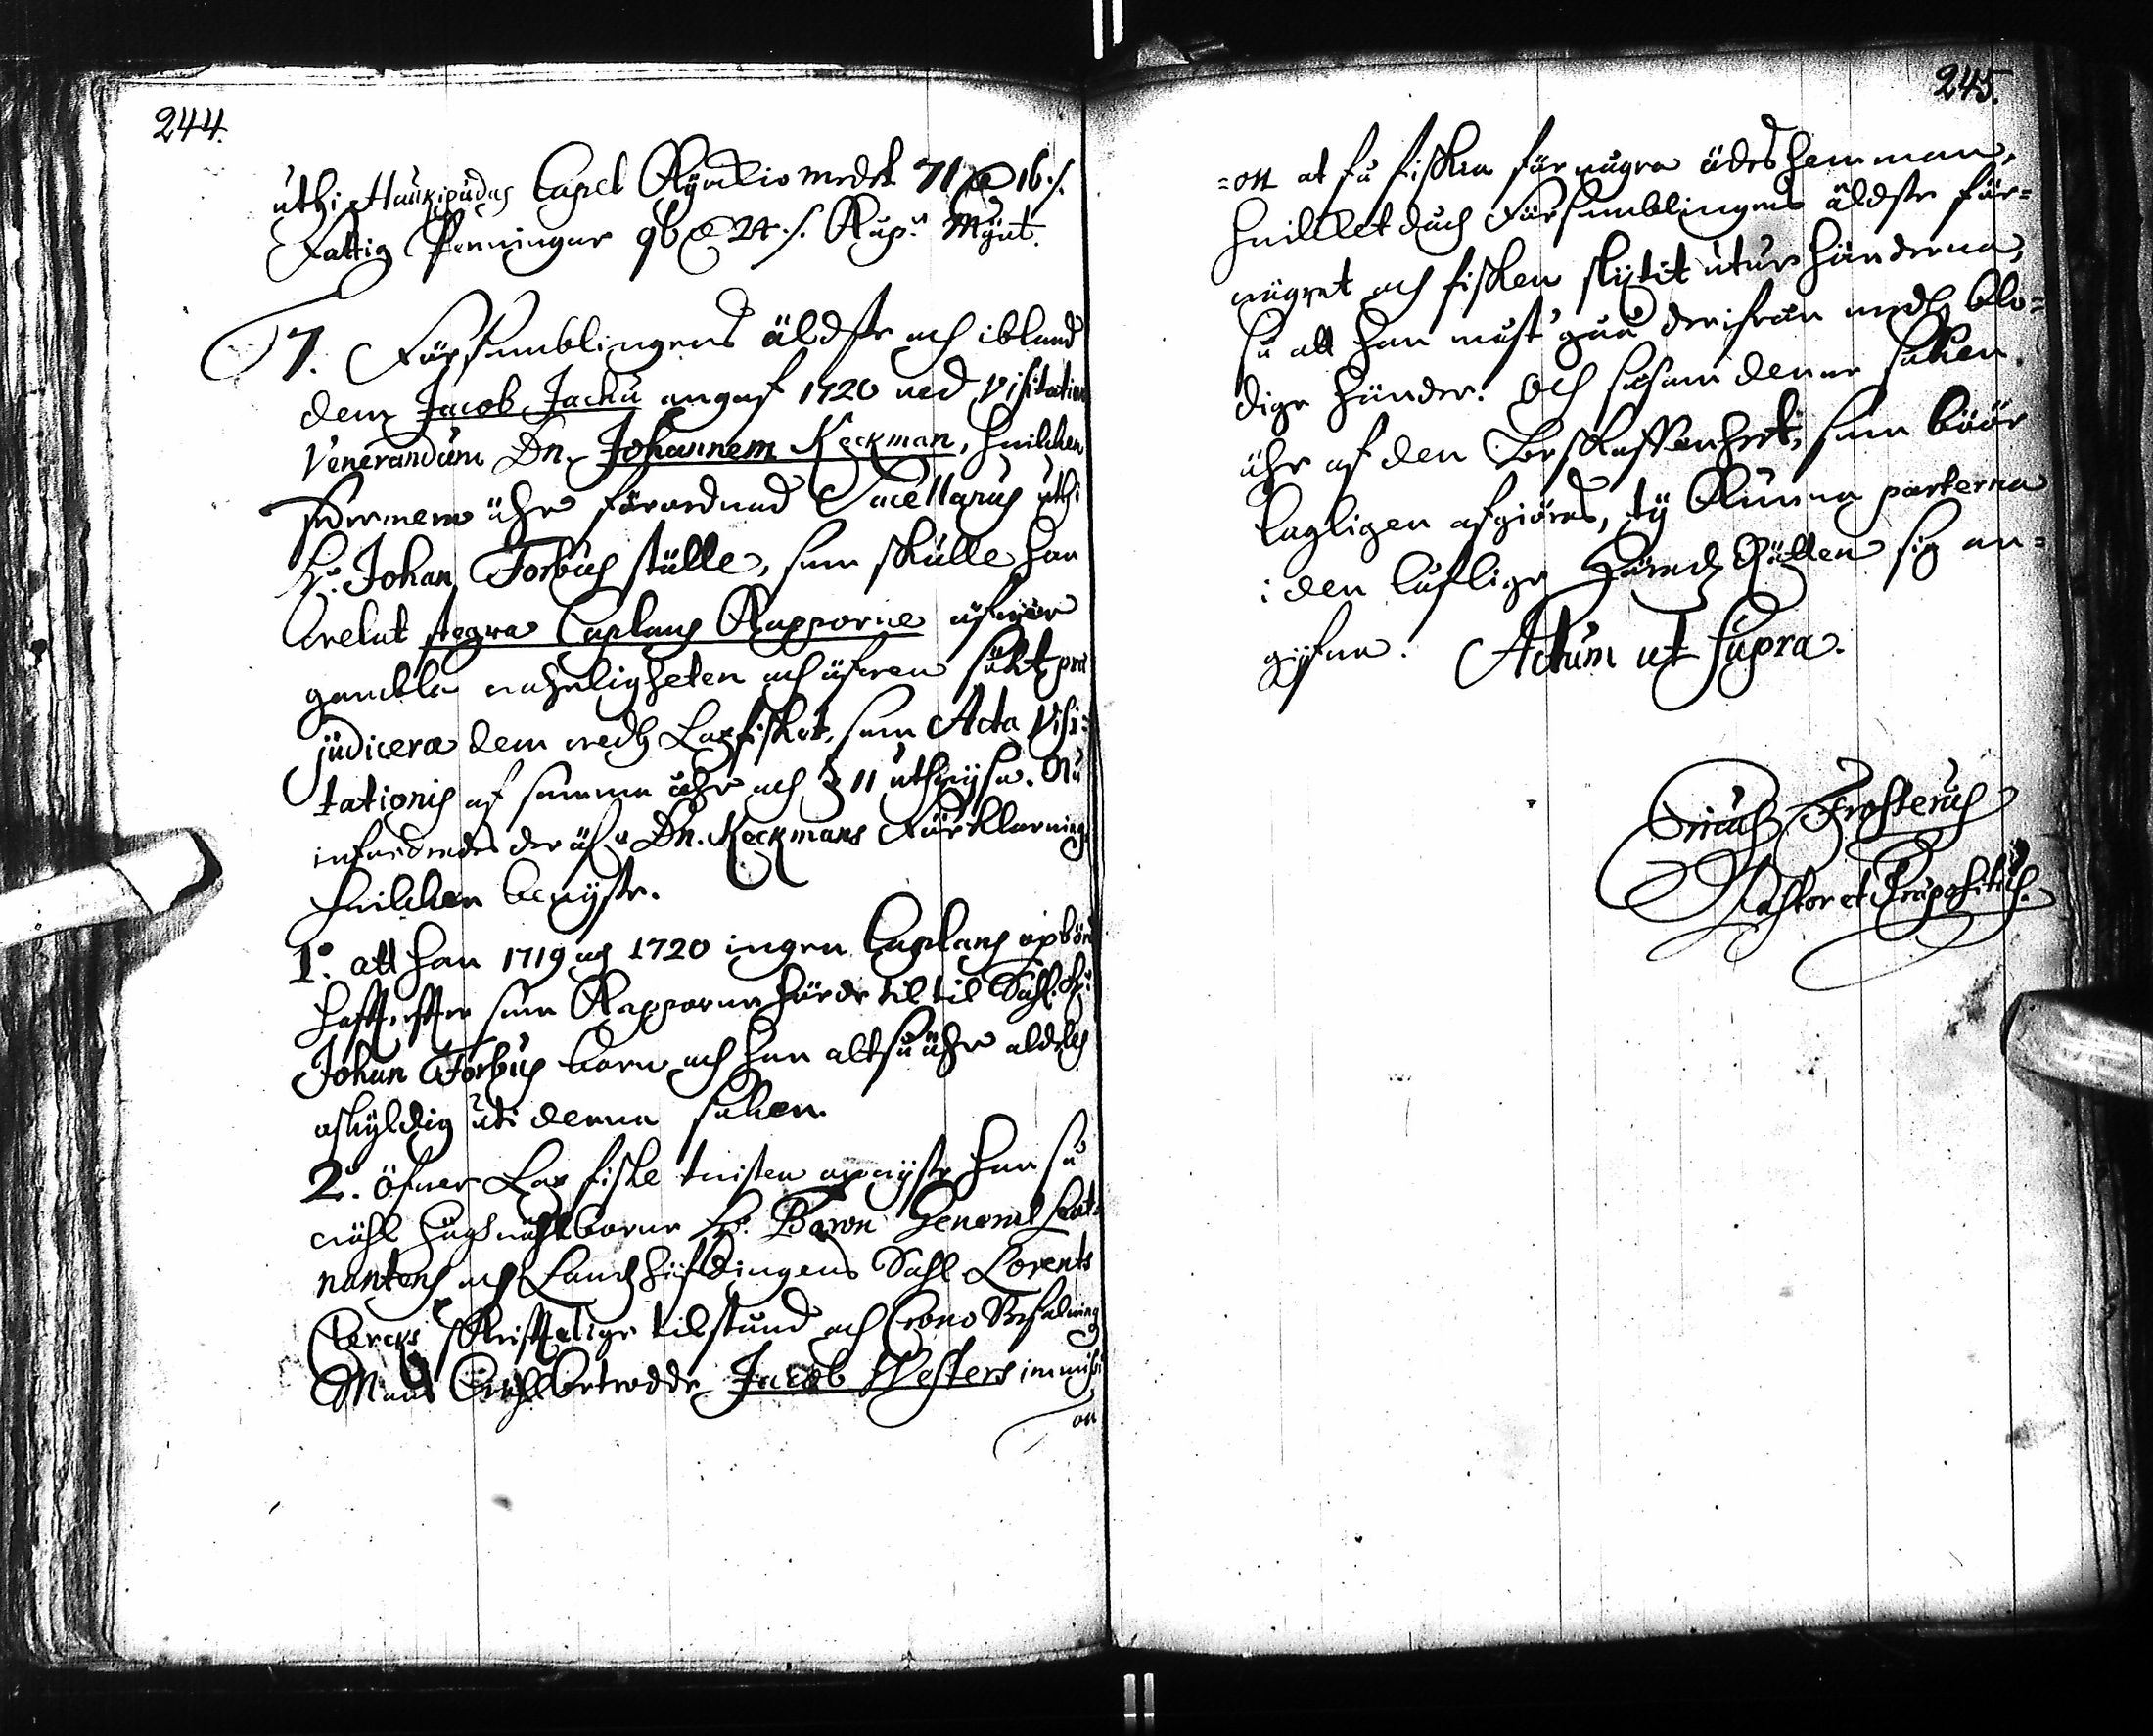 244.
uthi Haukipudas Capel Kyrckio medel 71 16 s.
Fattig Penningar 96 24 s. Kop:r Mynt.
7. Församblingens äldste och ibland
dem Jacob Jacku angaf 1720 ved Visitation
Venerandum Dn. Johannem Keckman, hvilcken
ähr förordnad Sacellanus uthi
Hr. Johan Forbus ställe, som skulle han
velat stegra Caplans Kapporne öfver
gamble vahnligheten och öfven sökt præ
judicera dem medh Laxfisket, som Acta Visi-
tationis af samma åhr och § 11 uthvijsa. Nu
infordrades deröfver Dn. Keckmans Förklaring
hvilcken
1:o att han 1719 och 1720 ingen Caplans opbörd
haft, efter som Kapporne hörde til til Sahl. Hr
Johan Forbus barn och han altså ähr aldeles
oskyldig uti denna saken.
2:o Öfver Lax fiske tvisten han så
väl högvählborne Hr. Baron General Leut-
nantens och Landshöfdingens Sahl Lorents
Clercks skrifftelige tilstånd och Crono Befalnings
Mans Wählbetrodde Jacob Westers
on
245.
=on at få fiskia för någre ödeshemman,
hvilket doch Församblingens äldste för-
vägrat och fisken slijtit utur händerna,
så att han måst gåå derifrån medh blo-
dige händer. Och såsom denne saken
ähr af den Beskaffenheet, som böör
lagligen afgiöras, ty kunna parterna
i den laglige Häradz Rätten sig an-
gifva. Actum ut supra.
Ericus Frosterus
Pastor et Præpositus.